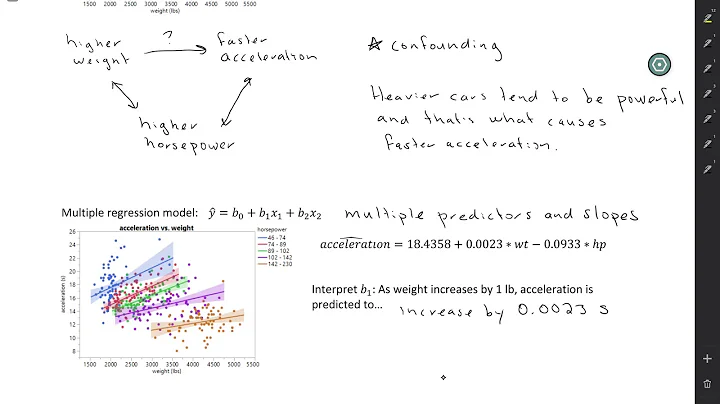 1500 2000 2500 3000 3500 4000 4500 5000 5500
weight (lbs)
higher
weight
?
faster
acceleration
higher
horsepower
★ confounding
Heavier cars tend to be powerful
and that's what causes
faster acceleration.
Multiple regression model: ŷ = b₀ + b₁x₁ + b₂x₂
multiple predictors and slopes
acceleration vs. weight
26
24
22
20
18
16
14
12
10
8
acceleration (s)
1500 2000 2500 3000 3500 4000 4500 5000 5500
weight (lbs)
horsepower
46 - 74
74 - 89
89 - 102
102 - 142
142 - 230
acceleration = 18.4358 + 0.0023 * wt − 0.0933 * hp
Interpret b₁: As weight increases by 1 lb, acceleration is
predicted to... increase by 0.0023 s